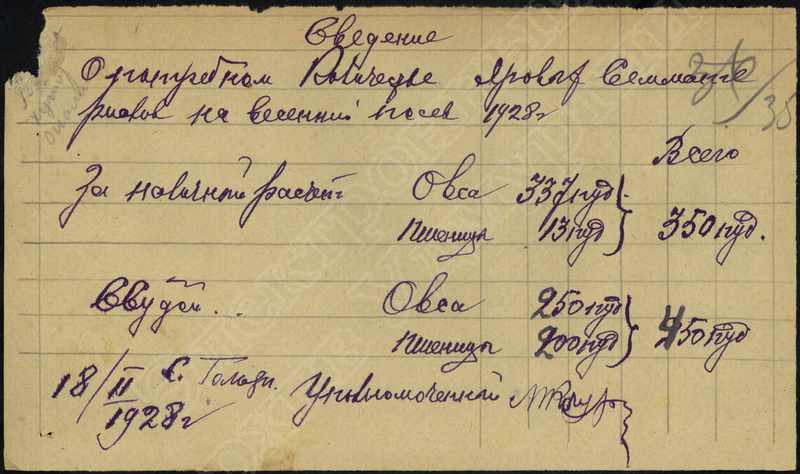 Сведение
О потребном Количестве яровых Семматер
риалов на весенний посев 1928 г
Всего
За наличный расчёт Овса 337 пуд
Пшеницы 13 пуд } 350 пуд.
Ссудой.. Овса 250 пуд
Пшеницы 200 пуд } 450 пуд
18/II 1928 г С. Уполномоченный
35